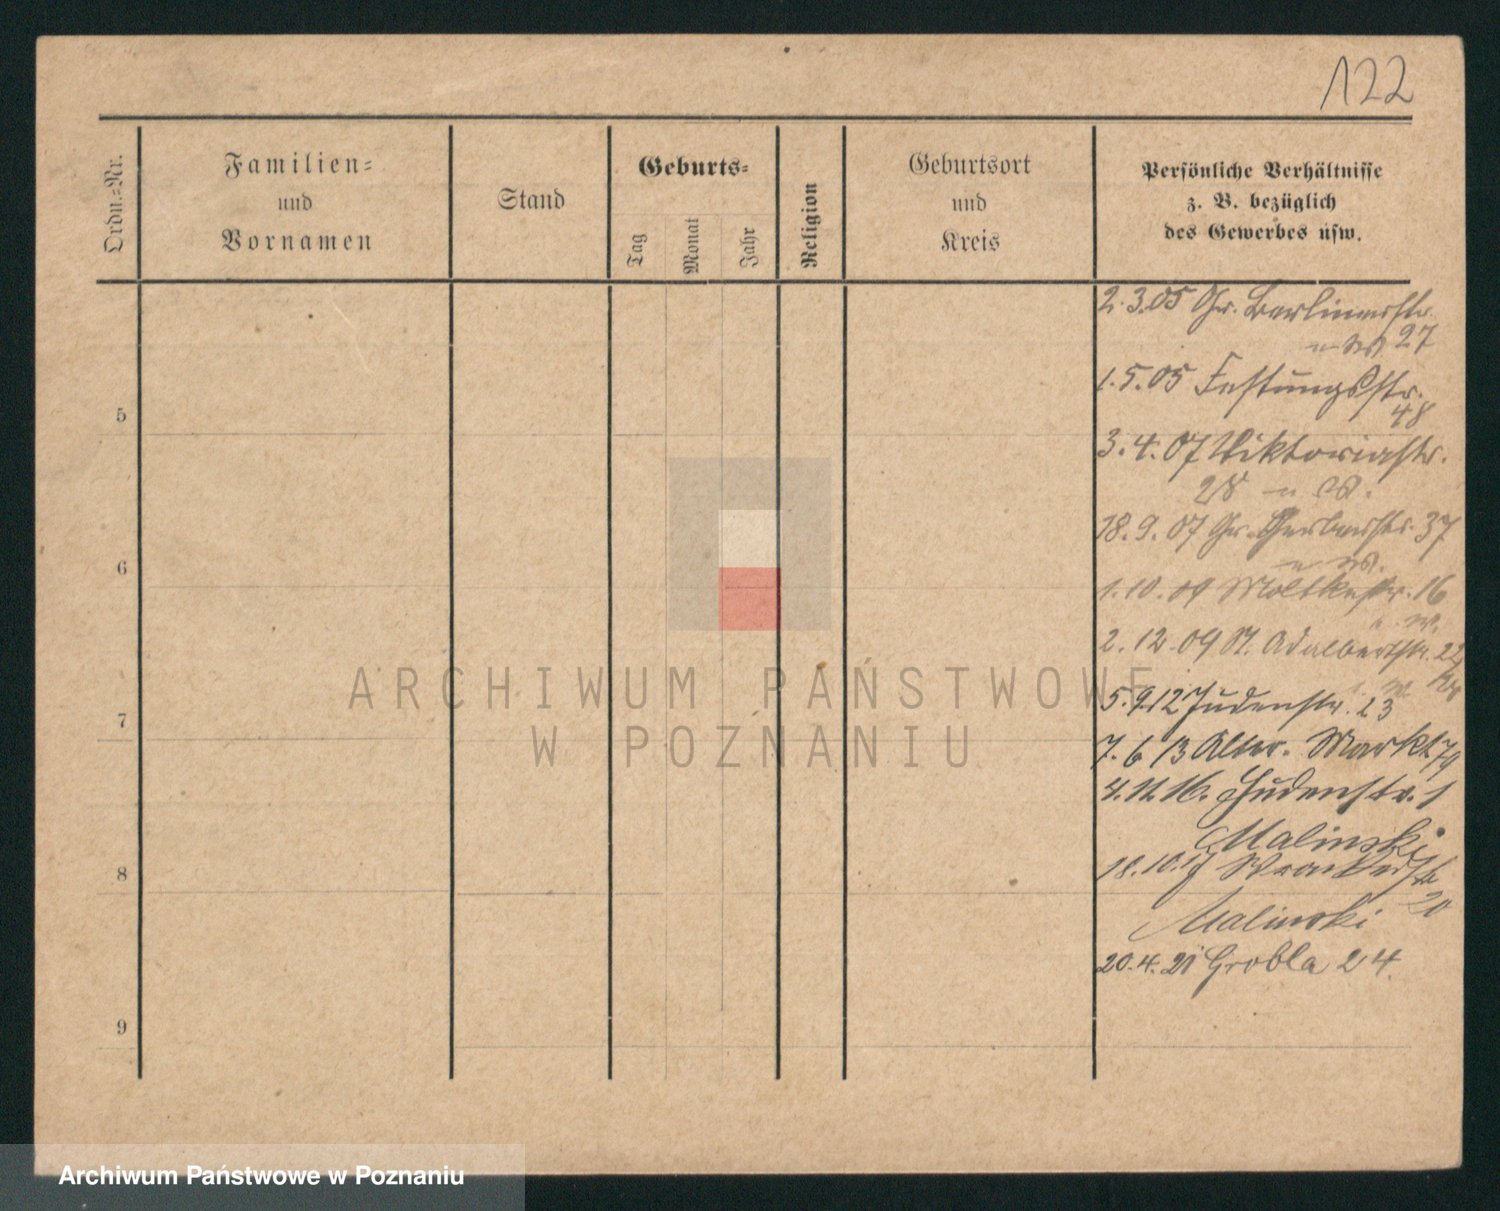 122
Ordn.=Nr.
Familien=
und
Vornamen
Stand
Geburts=
Tag
Monat
Jahr
Religion
Geburtsort
und
Kreis
Persönliche Verhältnisse
z. B. bezüglich
des Gewerbes usw.
2.3.05 Gr. Berlinerstr.
27
1.5.05 Festungsstr.
48
5
3.4.07 Viktoriastr.
28
18.9.07 Gr. Gerberstr. 37
6
1.10.09 Moltkestr. 16
2.12.09 St. Adalbertstr. 22
5.9.12 Judenstr. 23
7
7.6 13 Alter. Markt 79
4.11.16. Judenstr. 1
Malinski
18.10.17 Wronkerstr
8
20
Malinski
20.4.21 Grobla 24.
9
ARCHIWUM PAŃSTWOWE
W POZNANIU
Archiwum Państwowe w Poznaniu